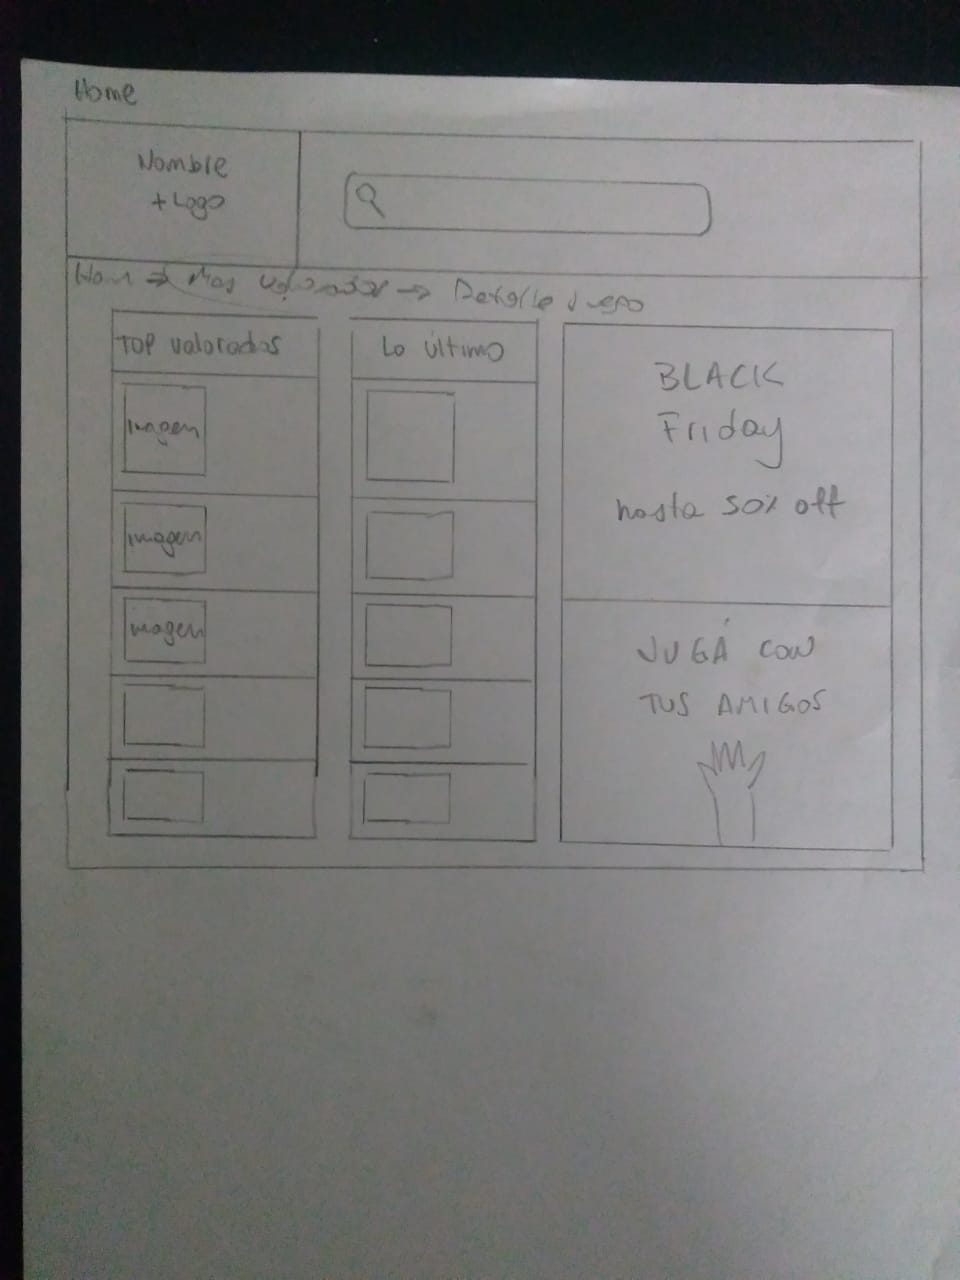 Home
Nombre
+ Logo
Hom → Mas valorados → Detalle Juego
TOP valorados
Imagen
Imagen
Imagen
Lo Último
BLACK
Friday
hasta 50% off
JUGÁ CON
TUS AMIGOS